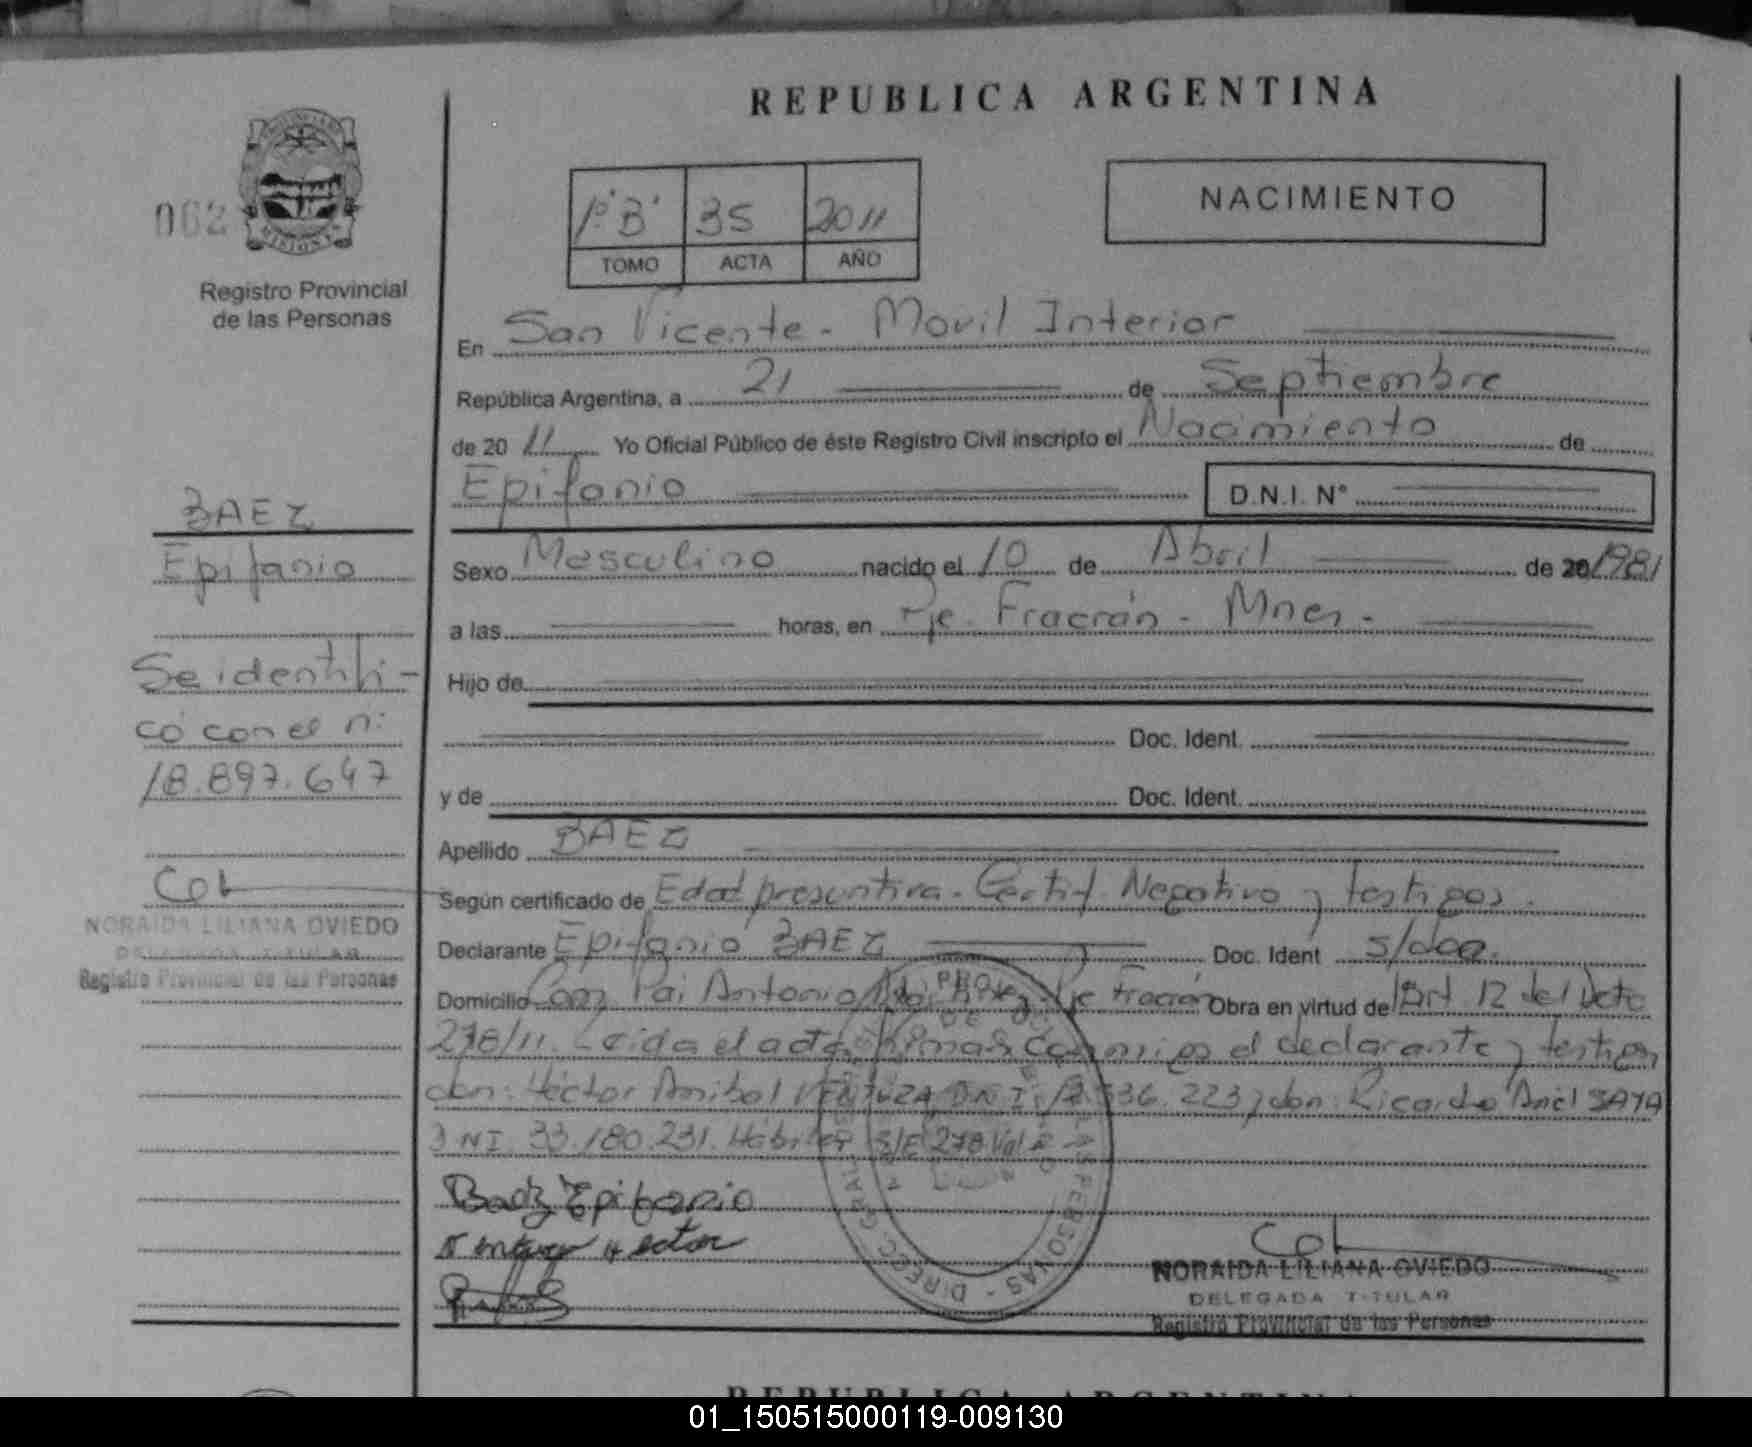 REPUBLICA ARGENTINA
062
PROVINCIA DE
MISIONES
Registro Provincial
de las Personas
1º "B" 35 2011
TOMO ACTA AÑO
NACIMIENTO
En San Vicente - Movil Interior
República Argentina, a 21 de Septiembre
de 20 11 Yo Oficial Público de éste Registro Civil inscripto el Nacimiento de
Epifanio D.N.I. Nº
BAEZ
Epifanio
Se identifi-
có con el n:
18.897.647
NORAIDA LILIANA OVIEDO
DELEGADA TITULAR
Registro Provincial de las Personas
Sexo Masculino nacido el 10 de Abril de 20 1981
a las horas, en Pje. Fracrán - Mnes.
Hijo de
Doc. Ident.
y de Doc. Ident.
Apellido BAEZ
Según certificado de Edad presuntiva - Certif. Negativo y testigos.
Declarante Epifanio BAEZ Doc. Ident s/doc.
Domicilio Pai Antonio Pje Fracrán Obra en virtud del Art 12 del Dcto
278/11. Leida el acta, firman conmigo el declarante y testigos
don: Héctor Anibal VENTUZA, D.N.I. 336.223 y don: Ricardo Ariel SAYA
D.NI. 33.180.231. Hábiles S/E 278 Vale
Baez Epifanio
Hector
NORAIDA LILIANA OVIEDO
DELEGADA TITULAR
Registro Provincial de las Personas
REPUBLICA ARGENTINA
01_150515000119-009130